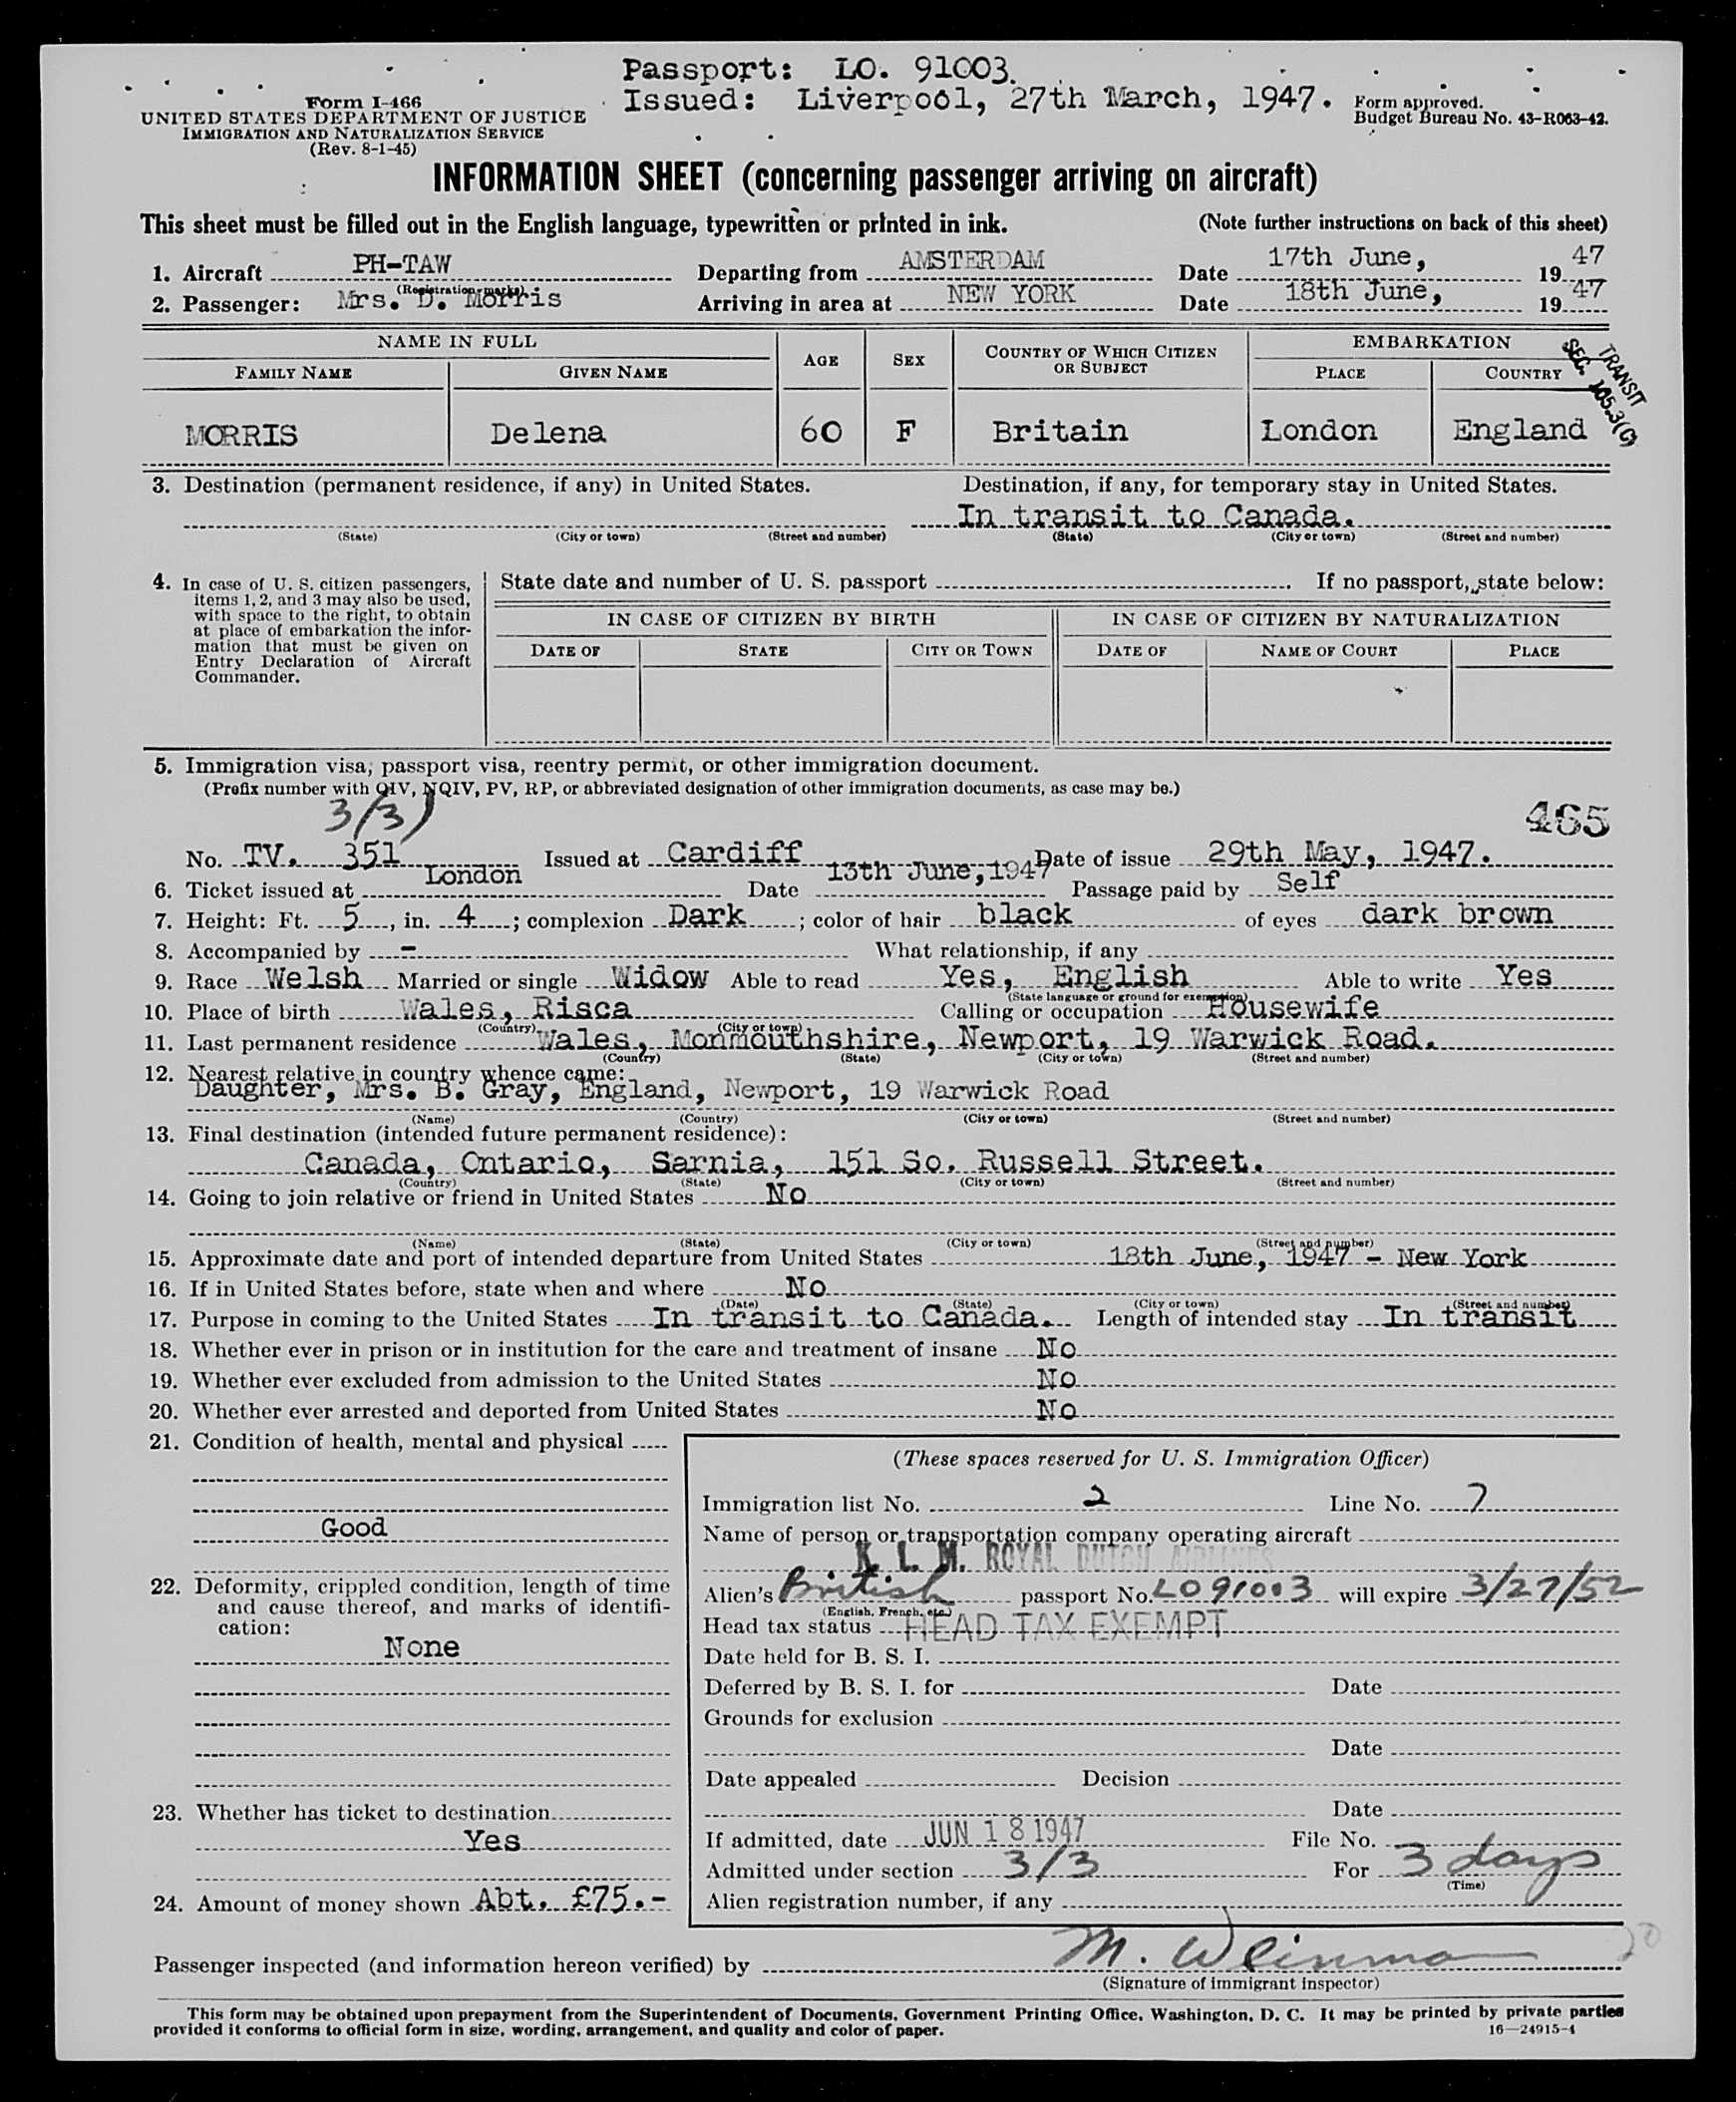 Passport: LO. 91003.
Issued: Liverpool, 27th March, 1947.
Form I-466
UNITED STATES DEPARTMENT OF JUSTICE
IMMIGRATION AND NATURALIZATION SERVICE
(Rev. 8-1-45)
Form approved.
Budget Bureau No. 43-R063-42.
INFORMATION SHEET (concerning passenger arriving on aircraft)
This sheet must be filled out in the English language, typewritten or printed in ink. (Note further instructions on back of this sheet)
1. Aircraft PH-TAW Departing from AMSTERDAM Date 17th June, 1947
(Registration marks)
2. Passenger: Mrs. D. Morris Arriving in area at NEW YORK Date 18th June, 1947
NAME IN FULL AGE SEX COUNTRY OF WHICH CITIZEN OR SUBJECT EMBARKATION
FAMILY NAME GIVEN NAME PLACE COUNTRY
TRANSIT
SEC. 105.3(C)
MORRIS Delena 60 F Britain London England
3. Destination (permanent residence, if any) in United States. Destination, if any, for temporary stay in United States.
In transit to Canada.
(State) (City or town) (Street and number) (State) (City or town) (Street and number)
4. In case of U. S. citizen passengers,
items 1, 2, and 3 may also be used,
with space to the right, to obtain
at place of embarkation the infor-
mation that must be given on
Entry Declaration of Aircraft
Commander.
State date and number of U. S. passport . If no passport, state below:
IN CASE OF CITIZEN BY BIRTH IN CASE OF CITIZEN BY NATURALIZATION
DATE OF STATE CITY OR TOWN DATE OF NAME OF COURT PLACE
5. Immigration visa, passport visa, reentry permit, or other immigration document.
(Prefix number with QIV, NQIV, PV, RP, or abbreviated designation of other immigration documents, as case may be.)
3/3)
465
No. TV. 351 Issued at Cardiff Date of issue 29th May, 1947.
6. Ticket issued at London Date 13th June, 1947 Passage paid by Self
7. Height: Ft. 5, in. 4; complexion Dark; color of hair black of eyes dark brown
8. Accompanied by - What relationship, if any
9. Race Welsh Married or single Widow Able to read Yes, English Able to write Yes
(State language or ground for exemption)
10. Place of birth Wales, Risca Calling or occupation Housewife
(Country) (City or town)
11. Last permanent residence Wales, Monmouthshire, Newport, 19 Warwick Road.
(Country) (State) (City or town) (Street and number)
12. Nearest relative in country whence came:
Daughter, Mrs. B. Gray, England, Newport, 19 Warwick Road
(Name) (Country) (City or town) (Street and number)
13. Final destination (intended future permanent residence):
Canada, Ontario, Sarnia, 151 So. Russell Street.
(Country) (State) (City or town) (Street and number)
14. Going to join relative or friend in United States No
(Name) (State) (City or town) (Street and number)
15. Approximate date and port of intended departure from United States 18th June, 1947 - New York
16. If in United States before, state when and where No
(Date) (State) (City or town) (Street and number)
17. Purpose in coming to the United States In transit to Canada. Length of intended stay In transit
18. Whether ever in prison or in institution for the care and treatment of insane No
19. Whether ever excluded from admission to the United States No
20. Whether ever arrested and deported from United States No
21. Condition of health, mental and physical
Good
22. Deformity, crippled condition, length of time
and cause thereof, and marks of identifi-
cation:
None
23. Whether has ticket to destination
Yes
24. Amount of money shown Abt. £75.-
(These spaces reserved for U. S. Immigration Officer)
Immigration list No. 2 Line No. 7
Name of person or transportation company operating aircraft
K. L. M. ROYAL DUTCH AIRLINES
Alien's British passport No. LO91003 will expire 3/27/52
(English, French, etc.)
Head tax status HEAD TAX EXEMPT
Date held for B. S. I.
Deferred by B. S. I. for Date
Grounds for exclusion
Date
Date appealed Decision
Date
If admitted, date JUN 18 1947 File No.
Admitted under section 3/3 For 3 days
(Time)
Alien registration number, if any
Passenger inspected (and information hereon verified) by M. Weinman
(Signature of immigrant inspector)
This form may be obtained upon prepayment from the Superintendent of Documents, Government Printing Office, Washington, D. C. It may be printed by private parties
provided it conforms to official form in size, wording, arrangement, and quality and color of paper. 16—24915-4